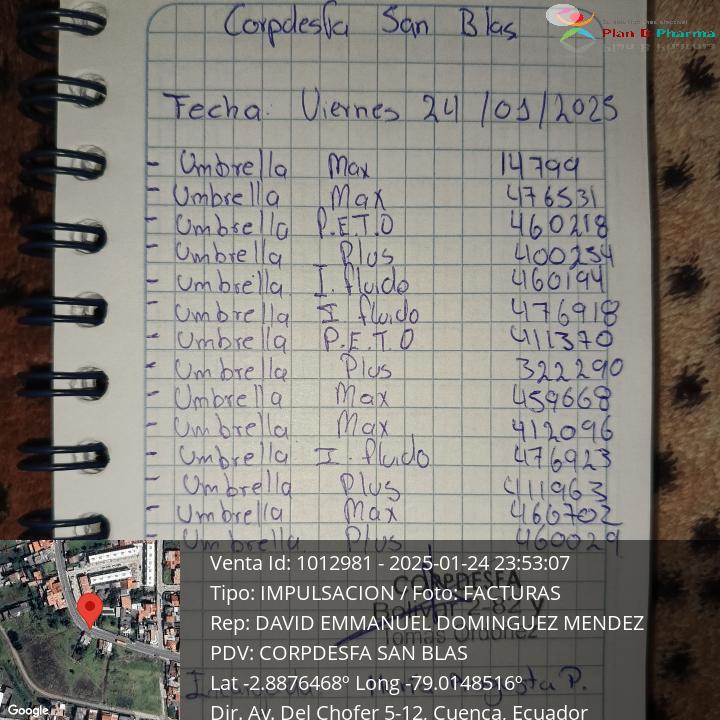 Corpdesfa San Blas
Plan B Pharma
Fecha: Viernes 24/01/2025
- Umbrella Max 14799
- Umbrella Max 476531
- Umbrella P.E.T.O 460218
- Umbrella Plus 400254
- Umbrella I. fluido 460194
- Umbrella I fluido 476918
- Umbrella P.E.T.O 411370
- Umbrella Plus 322290
- Umbrella Max 459668
- Umbrella Max 412096
- Umbrella I. fluido 476923
- Umbrella Plus 411963
- Umbrella Max 460702
- Umbrella Plus 460029
Venta Id: 1012981 - 2025-01-24 23:53:07
CORPDESFA
Tipo: IMPULSACION / Foto: FACTURAS
Bolívar 2-82 y
Rep: DAVID EMMANUEL DOMINGUEZ MENDEZ
Tomás Ordoñez
PDV: CORPDESFA SAN BLAS
Lat -2.8876468º Long -79.0148516º
P.
Dir. Av. Del Chofer 5-12, Cuenca, Ecuador
Google